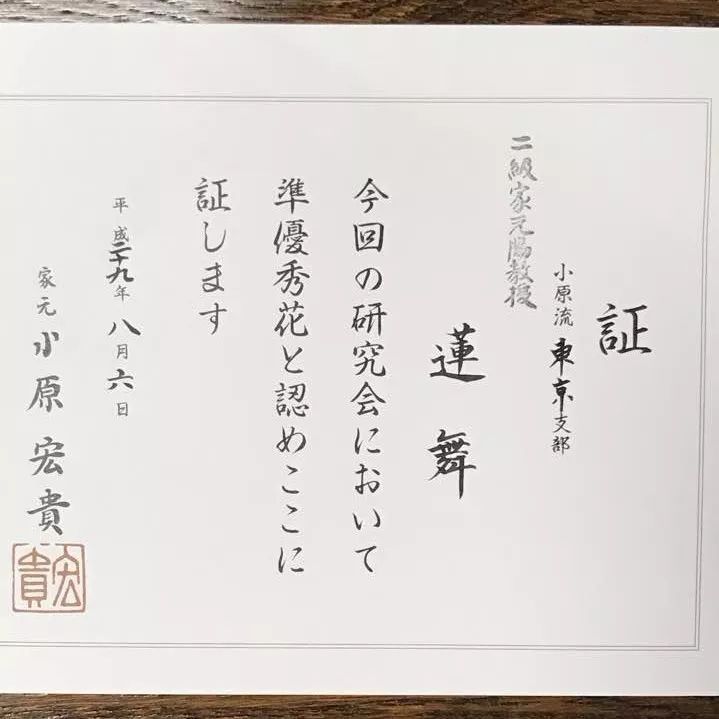 証
小原流 東京支部
二級家元脇教授
蓮舞
今回の研究会において
準優秀花と認めここに
証します
平成二十九年八月六日
家元 小原宏貴
宏貴